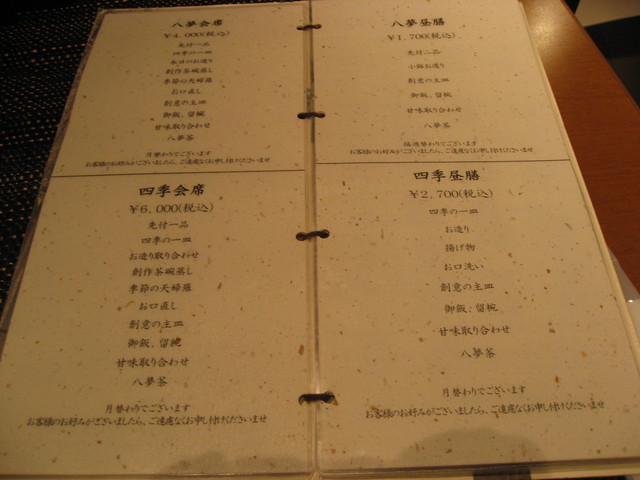 八夢会席
￥4,000(税込)
先付一品
四季の一皿
本日のお造り
創作茶碗蒸し
季節の天婦羅
お口直し
創意の主皿
御飯、留椀
甘味取り合わせ
八夢茶
月替わりでございます
お客様のお好みがございましたら、ご遠慮なくお申し付けくださいませ
四季会席
￥6,000(税込)
先付一品
四季の一皿
お造り取り合わせ
創作茶碗蒸し
季節の天婦羅
お口直し
創意の主皿
御飯、留椀
甘味取り合わせ
八夢茶
月替わりでございます
お客様のお好みがございましたら、ご遠慮なくお申し付けくださいませ
八夢昼膳
￥1,700(税込)
先付二品
小鉢お造り
創意の主皿
御飯、留椀
甘味取り合わせ
八夢茶
隔週替わりでございます
お客様のお好みがございましたら、ご遠慮なくお申し付けくださいませ
四季昼膳
￥2,700(税込)
四季の一皿
お造り
揚げ物
お口洗い
創意の主皿
御飯、留椀
甘味取り合わせ
八夢茶
月替わりでございます
お客様のお好みがございましたら、ご遠慮なくお申し付けくださいませ